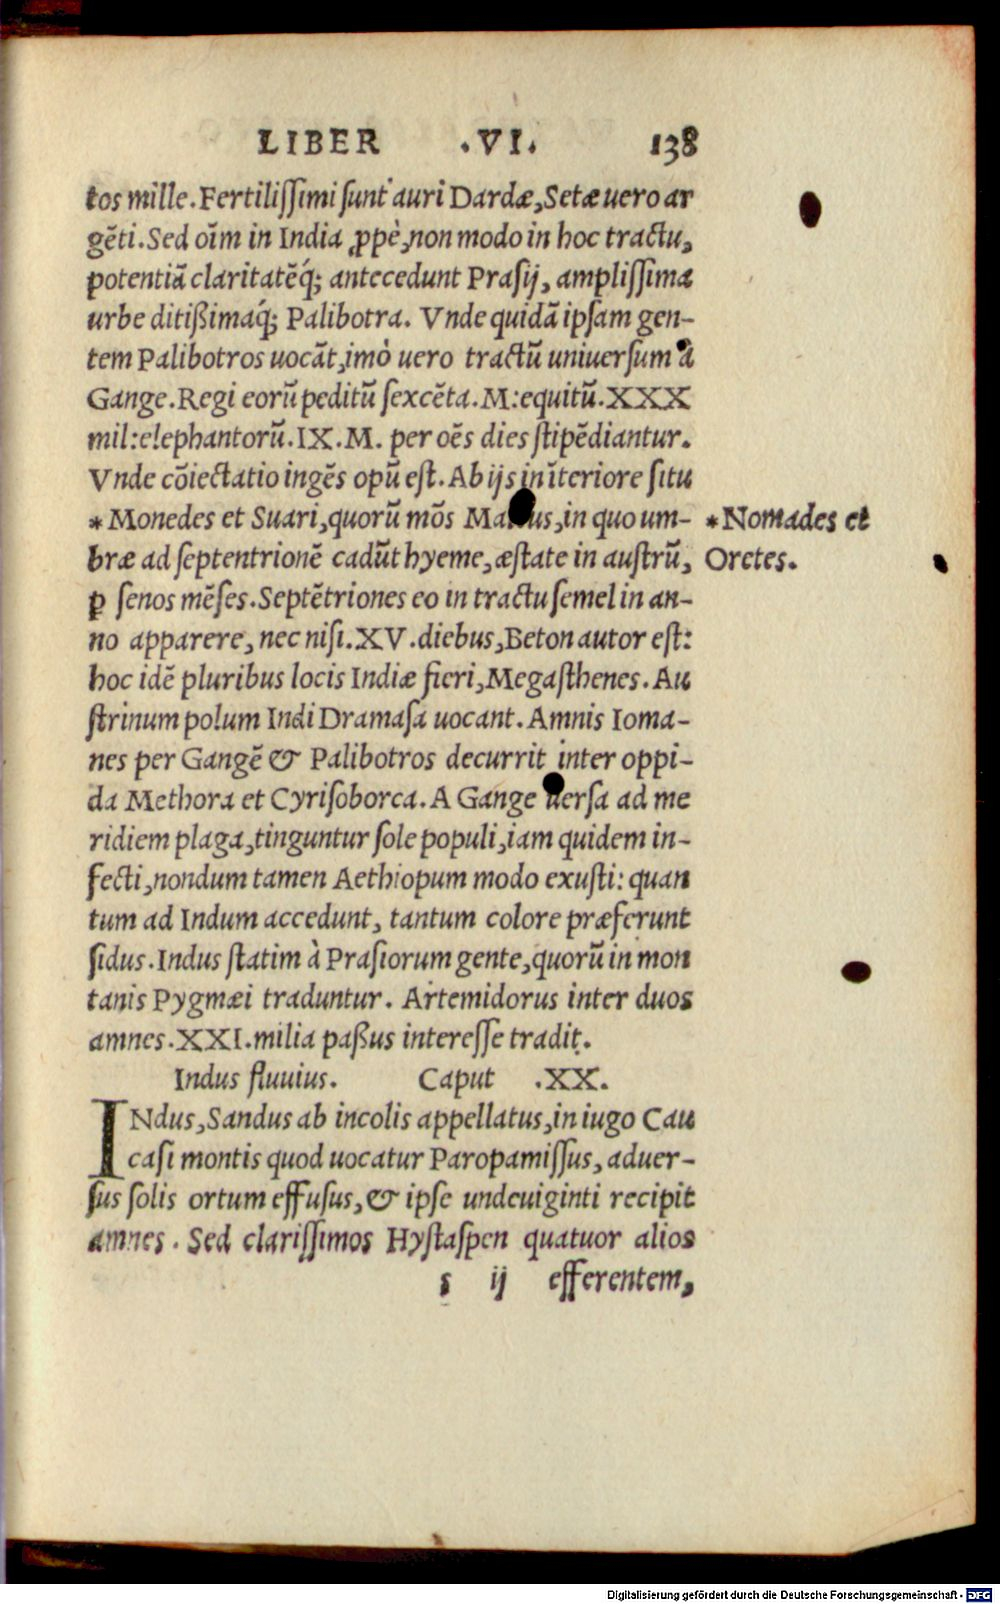 LIBER .VI. 138
tos mille. Fertilissimi sunt auri Dardæ, Setæ uero ar
gēti. Sed oīm in India ꝓpè, non modo in hoc tractu,
potentiā claritatēq́; antecedunt Prasij, amplissima
urbe ditißimaq́; Palibotra. Vnde quidā ipsam gen-
tem Palibotros uocāt, imò uero tractū uniuersum à
Gange. Regi eorū peditū sexcēta. M: equitū. XXX
mil: elephantorū. IX. M. per oēs dies stipēdiantur.
Vnde cōiectatio ingēs opū est. Ab ijs in īteriore situ
*Monedes et Suari, quorū mōs in quo um- *Nomades et
bræ ad septentrionē cadūt hyeme, æstate in austrū, Oretes.
ꝑ senos mēses. Septētriones eo in tractu semel in an-
no apparere, nec nisi. XV. diebus, Beton autor est:
hoc idē pluribus locis Indiæ fieri, Megasthenes. Au
strinum polum Indi Dramasa uocant. Amnis Ioma-
nes per Gangē & Palibotros decurrit inter oppi-
da Methora et Cyrisoborca. A Gange uersa ad me
ridiem plaga, tinguntur sole populi, iam quidem in-
fecti, nondum tamen Aethiopum modo exusti: quan
tum ad Indum accedunt, tantum colore præferunt
sidus. Indus statim à Prasiorum gente, quorū in mon
tanis Pygmæi traduntur. Artemidorus inter duos
amnes. XXI. milia paßus interesse tradit.
Indus fluuius. Caput .XX.
INdus, Sandus ab incolis appellatus, in iugo Cau
casi montis quod uocatur Paropamissus, aduer-
sus solis ortum effusus, & ipse undeuiginti recipit
amnes. Sed clarissimos Hystaspen quatuor alios
s ij efferentem,
Digitalisierung gefördert durch die Deutsche Forschungsgemeinschaft - DFG